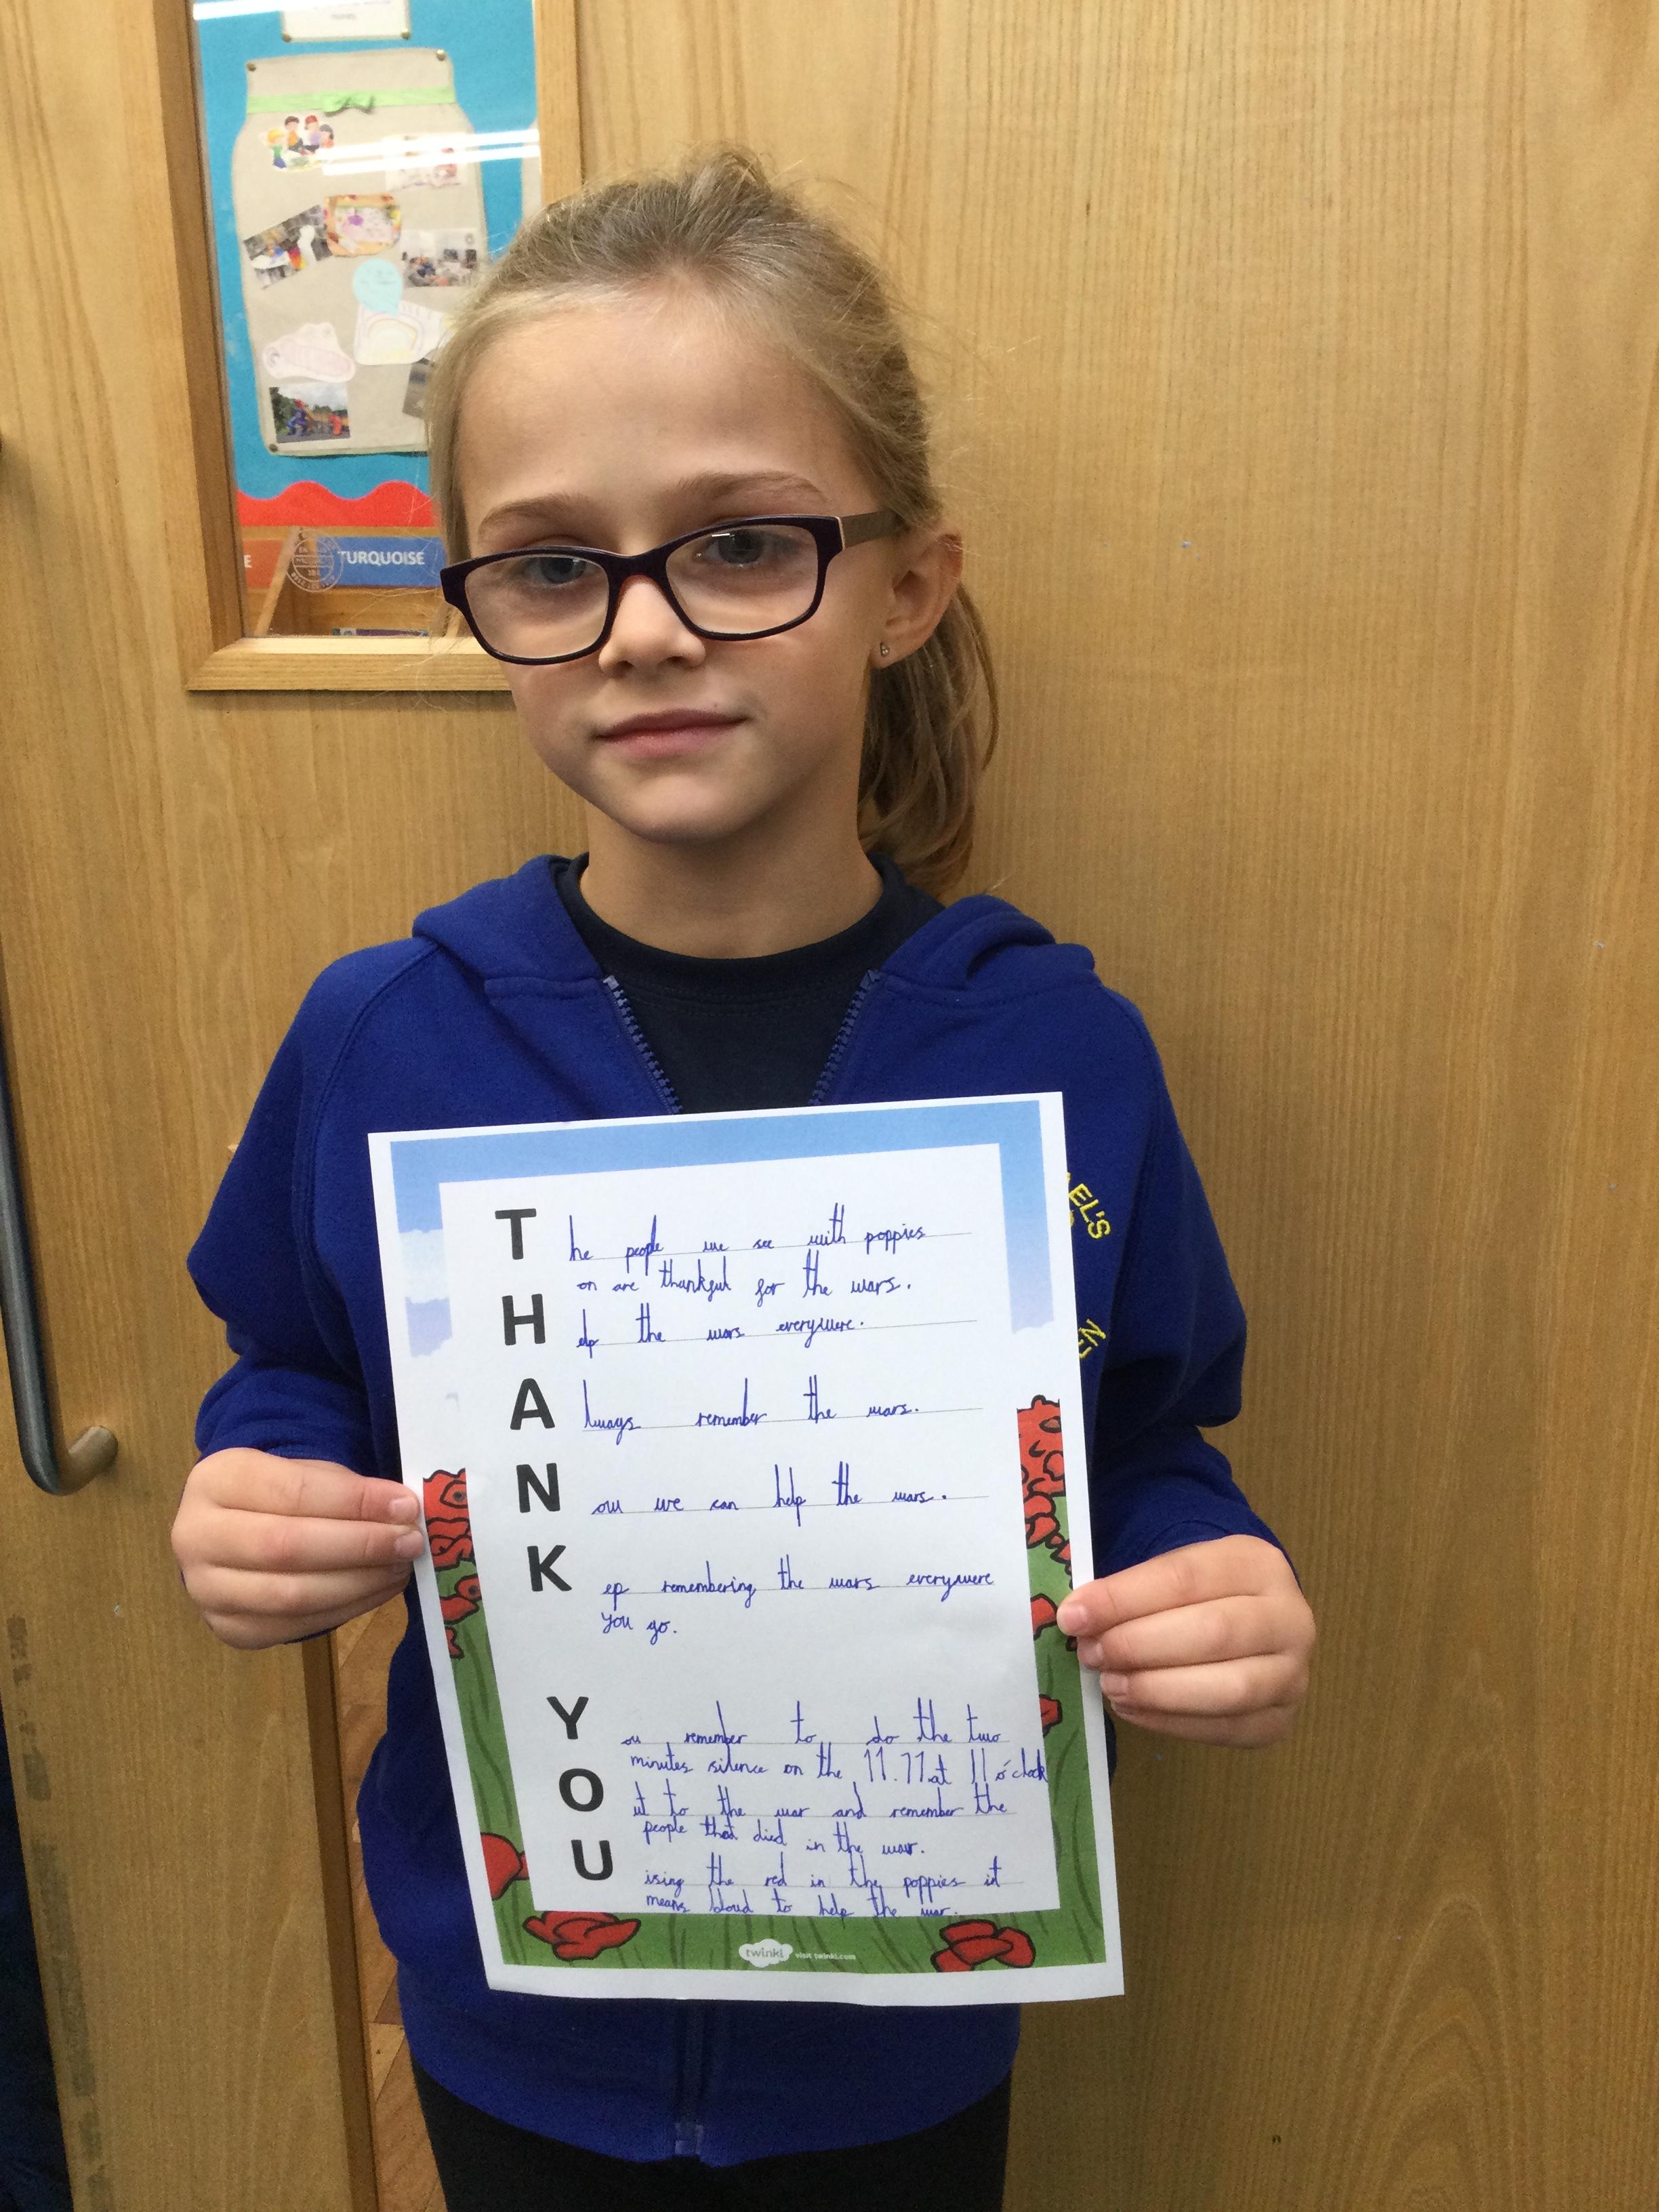 TURQUOISE
EL'S
The people we see with poppies
on are thankful for the wars.
Help the wars everywere.
Always remember the wars.
Nouw we can help the wars.
Kep remembering the wars everywere
you go.
You remember to do the two
minutes silence on the 11.11 at 11 o'clock
Out to the war and remember the
people that died in the war.
Using the red in the poppies it
means bloud to help the war.
twinkl visit twinkl.com